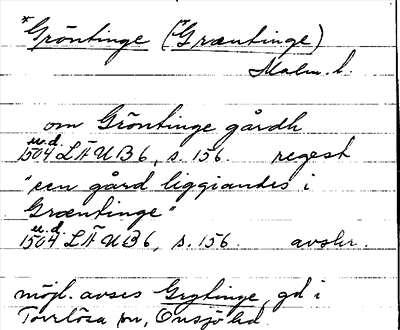 *Gröntinge (*Græntinge)
Malm. l.
om Gröntinge gårdh
u.d.
1504 LÄUB 6, s. 156. regest
"een gård liggiandes i
Græntinge"
u.d.
1504 LÄUB 6, s. 156. avskr.
möjl. avses Grytinge, gd i
Torrlösa sn, Onsjö hd